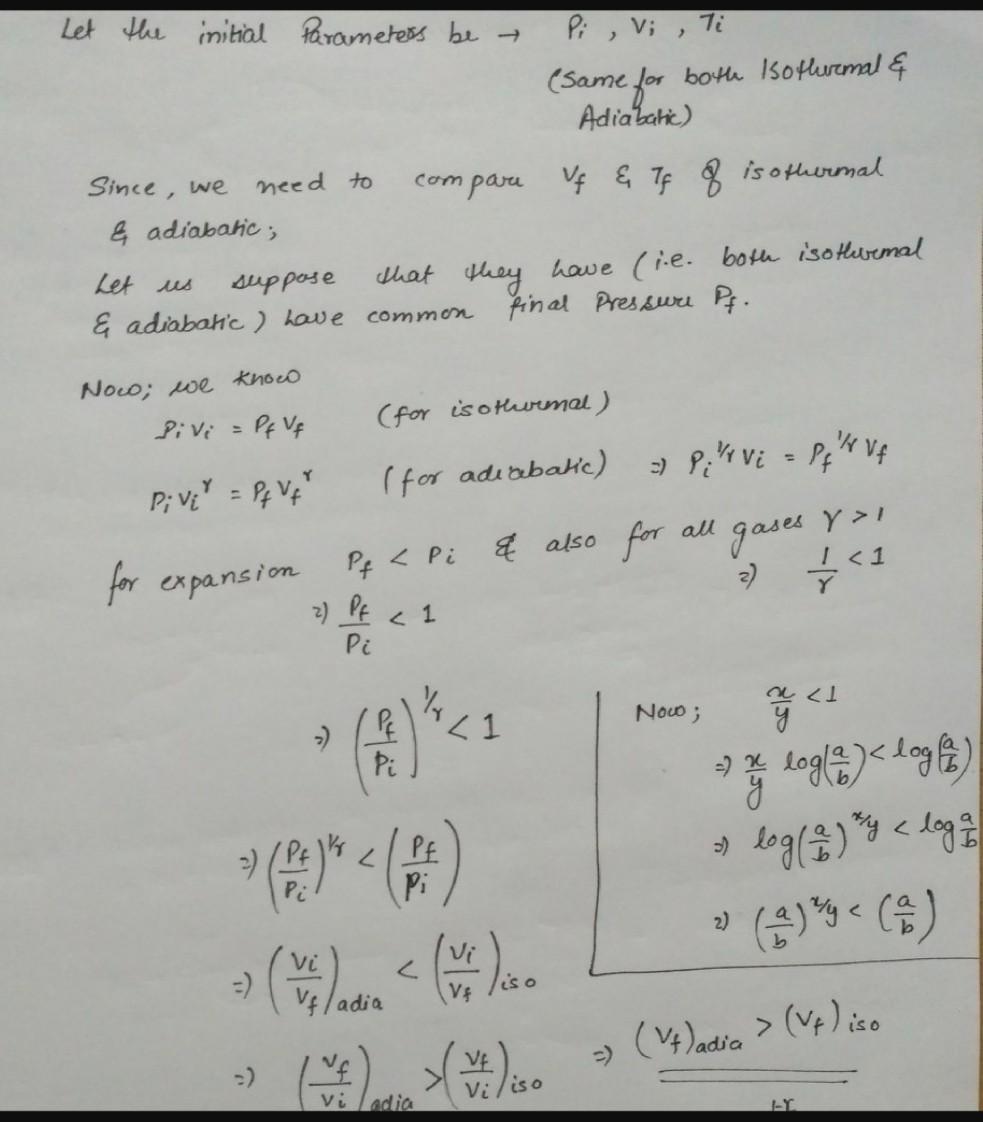 Let the initial Parameters be → Pi , Vi , Ti
(Same for both Isothermal &
Adiabatic)
Since, we need to compare Vf & Tf of isothermal
& adiabatic;
Let us suppose that they have (i.e. both isothermal
& adiabatic) have common final Pressure Pf.
Now; we know
PiVi = PfVf (for isothermal)
PiVi^γ = PfVf^γ (for adiabatic) ⇒ Pi^1/γ Vi = Pf^1/γ Vf
for expansion Pf < Pi & also for all gases γ > 1
⇒ Pf/Pi < 1 ⇒ 1/γ < 1
⇒ (Pf/Pi)^1/γ < 1
⇒ (Pf/Pi)^1/γ < (Pf/Pi)
⇒ (Vi/Vf)adia < (Vi/Vf)iso
⇒ (Vf/Vi)adia > (Vf/Vi)iso ⇒ (Vf)adia > (Vf)iso
Now; x/y < 1
⇒ x/y log(a/b) < log(a/b)
⇒ log(a/b)^x/y < log a/b
⇒ (a/b)^x/y < (a/b)
1-γ